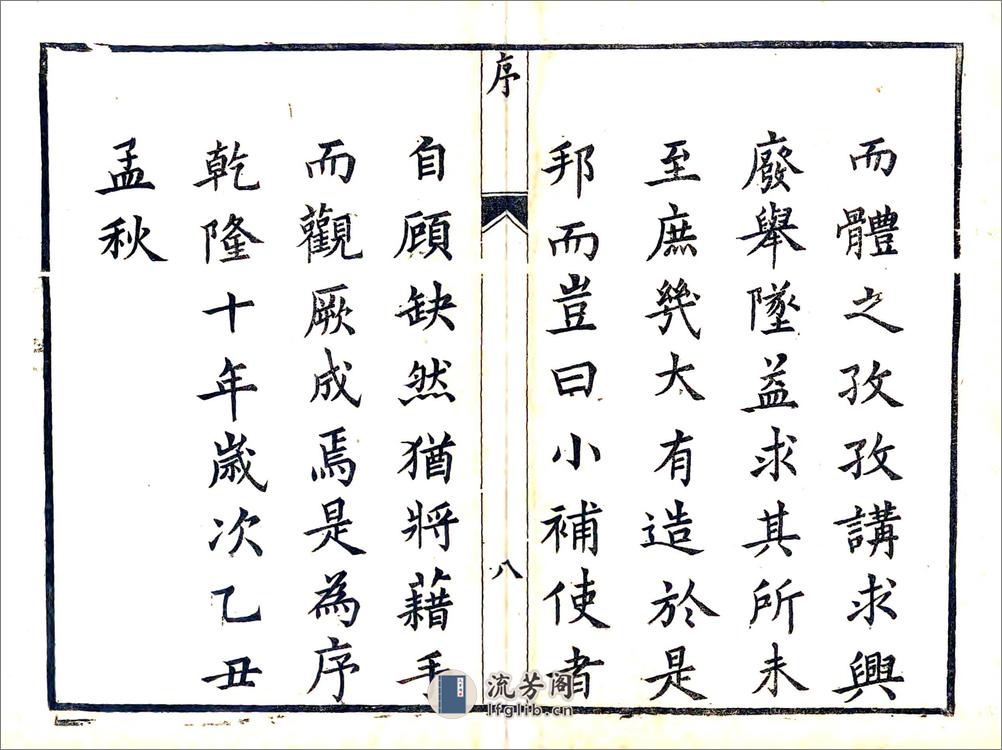 而體之孜孜講求興
廢舉墜益求其所未
至庶幾大有造於是
邦而豈曰小補使者
序
八
自顧缺然猶將藉手
而觀厥成焉是為序
乾隆十年歲次乙丑
孟秋
流芳阁
lfglib.cn